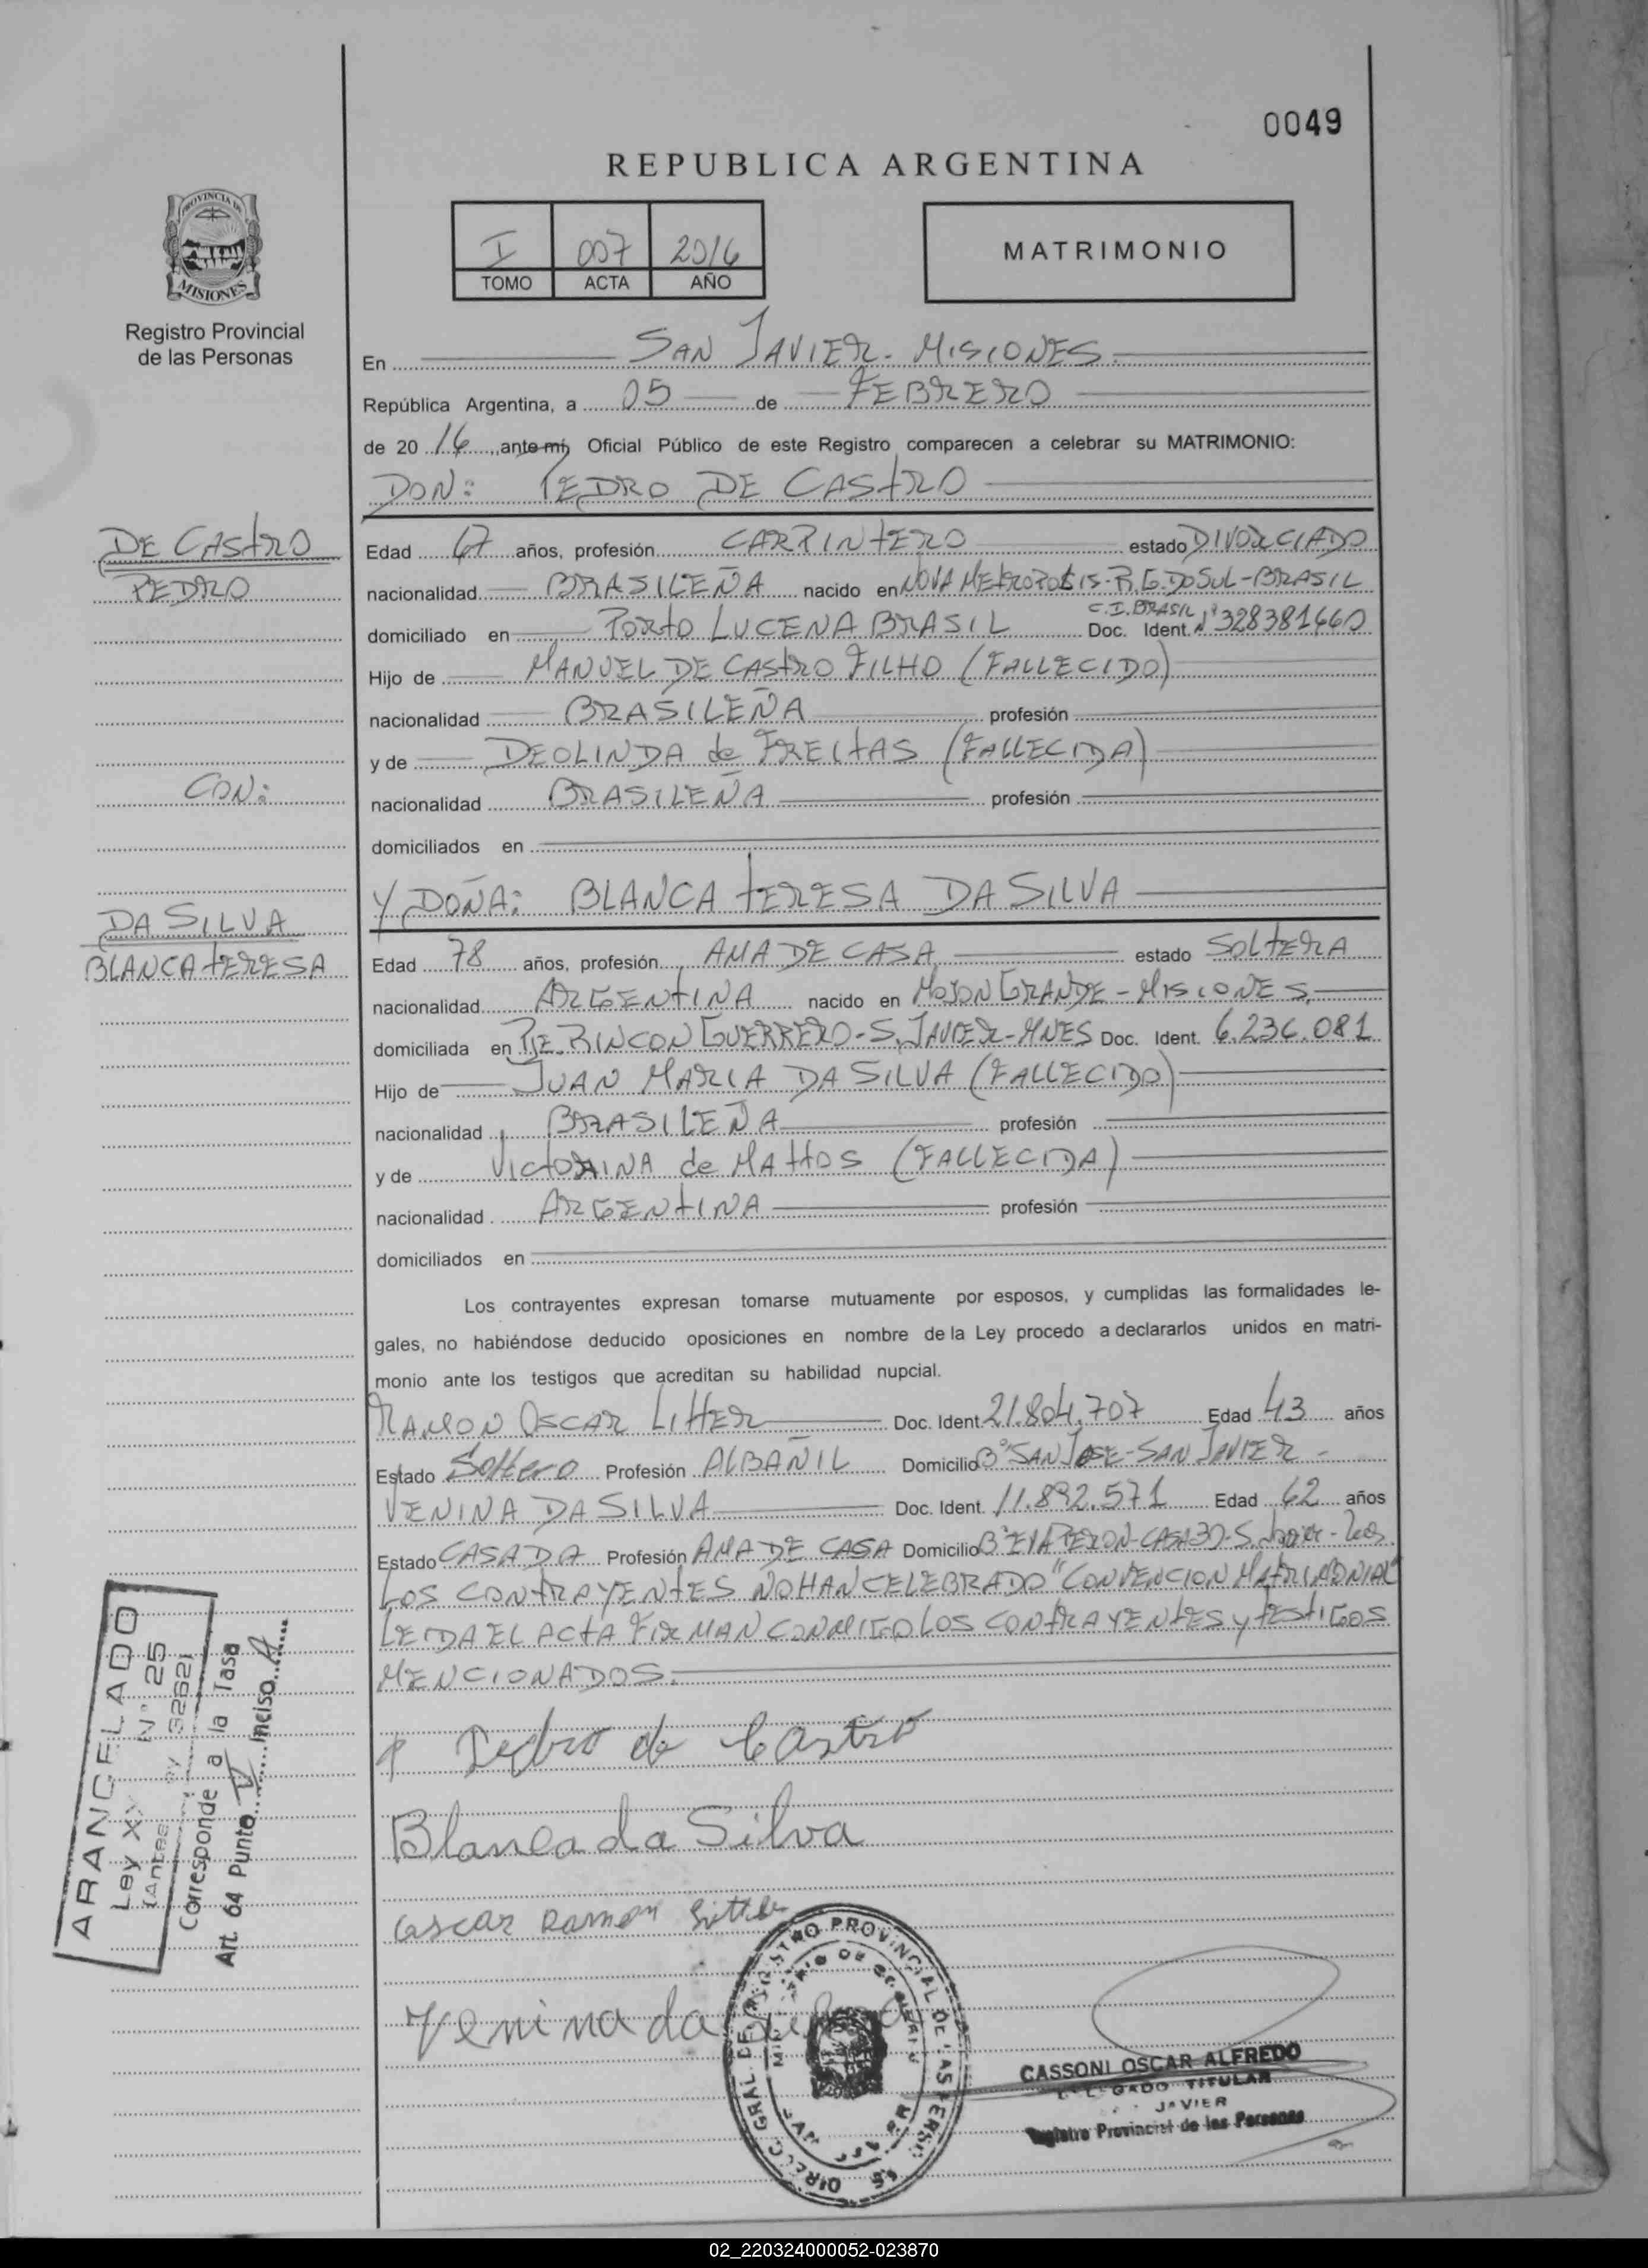 0049
REPUBLICA ARGENTINA
PROVINCIA DE
MISIONES
Registro Provincial
de las Personas
I 007 2016
TOMO ACTA AÑO
MATRIMONIO
En SAN JAVIER - MISIONES
República Argentina, a 05 de FEBRERO
de 20 16 ante mí, Oficial Público de este Registro comparecen a celebrar su MATRIMONIO:
DON: PEDRO DE CASTRO
DE CASTRO
PEDRO
CON:
DA SILVA
BLANCA TERESA
Edad 67 años, profesión CARPINTERO estado DIVORCIADO
nacionalidad BRASILEÑA nacido en NOVA METROPOLIS-R.G.DO SUL-BRASIL
domiciliado en PORTO LUCENA BRASIL Doc. Ident. C.I. BRASIL Nº 328381660
Hijo de MANUEL DE CASTRO FILHO (FALLECIDO)
nacionalidad BRASILEÑA profesión
y de DEOLINDA de FREITAS (FALLECIDA)
nacionalidad BRASILEÑA profesión
domiciliados en
Y DOÑA: BLANCA TERESA DA SILVA
Edad 78 años, profesión AMA DE CASA estado SOLTERA
nacionalidad ARGENTINA nacido en MOJON GRANDE - MISIONES
domiciliada en RINCON GUERRERO-S. JAVIER-MNES Doc. Ident. 6.236.081
Hijo de JUAN MARIA DA SILVA (FALLECIDO)
nacionalidad BRASILEÑA profesión
y de VICTORINA de MATTOS (FALLECIDA)
nacionalidad ARGENTINA profesión
domiciliados en
Los contrayentes expresan tomarse mutuamente por esposos, y cumplidas las formalidades le-
gales, no habiéndose deducido oposiciones en nombre de la Ley procedo a declararlos unidos en matri-
monio ante los testigos que acreditan su habilidad nupcial.
RAMON OSCAR LITTER Doc. Ident. 21.804.707 Edad 43 años
Estado Soltero Profesión ALBAÑIL Domicilio Bº SAN JOSE-SAN JAVIER -
VENINA DA SILVA Doc. Ident. 11.892.571 Edad 62 años
Estado CASADA Profesión AMA DE CASA Domicilio Bº EVA PERON-CASA 30-S. Javier-
LOS CONTRAYENTES NO HAN CELEBRADO "CONVENCION MATRIMONIAL"
LEIDA EL ACTA FIRMAN CONMIGO LOS CONTRAYENTES y TESTIGOS
MENCIONADOS.
Pedro de Castro
Blanca da Silva
Oscar Ramon Litter
Venina da Silva
ARANCELADO
Ley XV Nº 25
(Antes Ley 3262)
Corresponde a la Tasa
Art. 64 Punto V Inciso A
DIRECC. GRAL. DEL REGISTRO PROVINCIAL DE LAS PERSONAS
MINISTERIO DE GOBIERNO
CASSONI OSCAR ALFREDO
DELEGADO TITULAR
JAVIER
Registro Provincial de las Personas
02_220324000052-023870